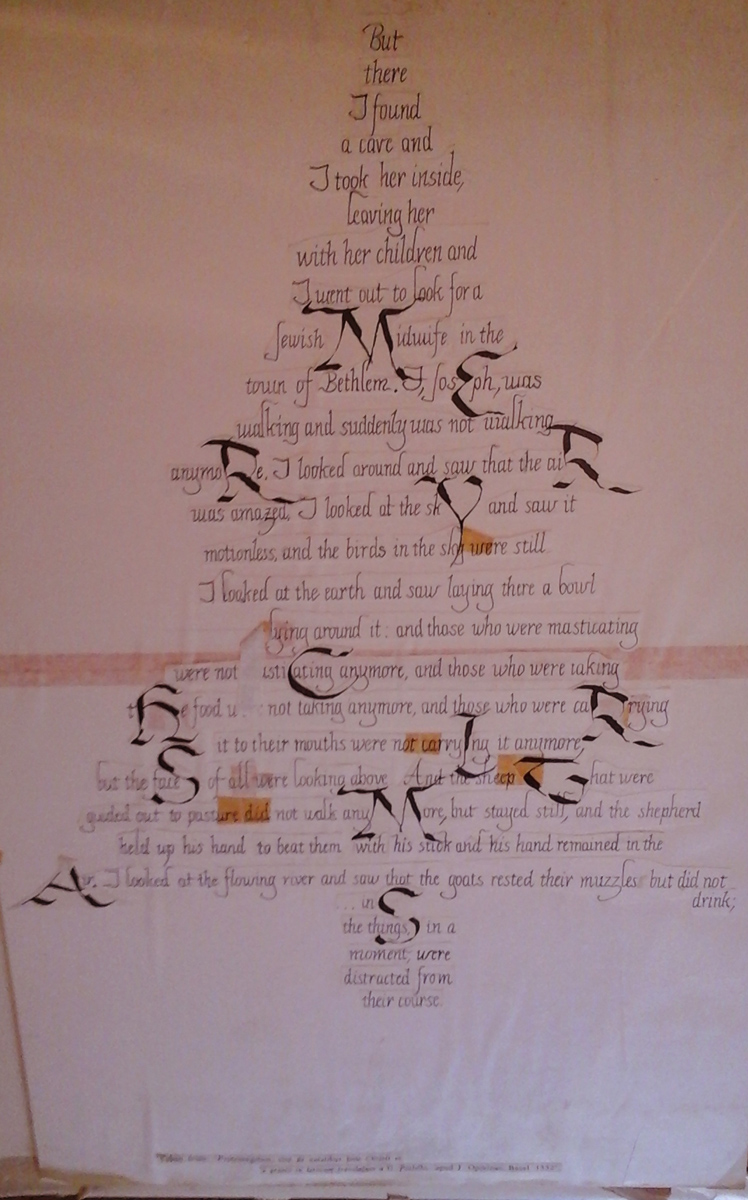 But
there
I found
a cave and
I took her inside,
leaving her
with her children and
I went out to look for a
Jewish Midwife in the
town of Bethlem. I, JosEph, was
walking and suddenly was not walking
anymoRe. I looked around and saw that the aiR
was amazed, I looked at the skY and saw it
motionless, and the birds in the sky were still
I looked at the earth and saw laying there a bowl
lying around it: and those who were masticating
were not astiCating anymore, and those who were taking
tHe food not taking anymore, and those who were caRrying
it to their mouths were not carryIng it anymore,
but the face S of all were looking above. And the sheep That were
guided out to pasture did not walk anyMore, but stayed still, and the shepherd
held up his hand to beat them with his stick and his hand remained in the
Air. I looked at the flowing river and saw that the goats rested their muzzles but did not
drink;
in S
the things, in a
moment, were
distracted from
their course.